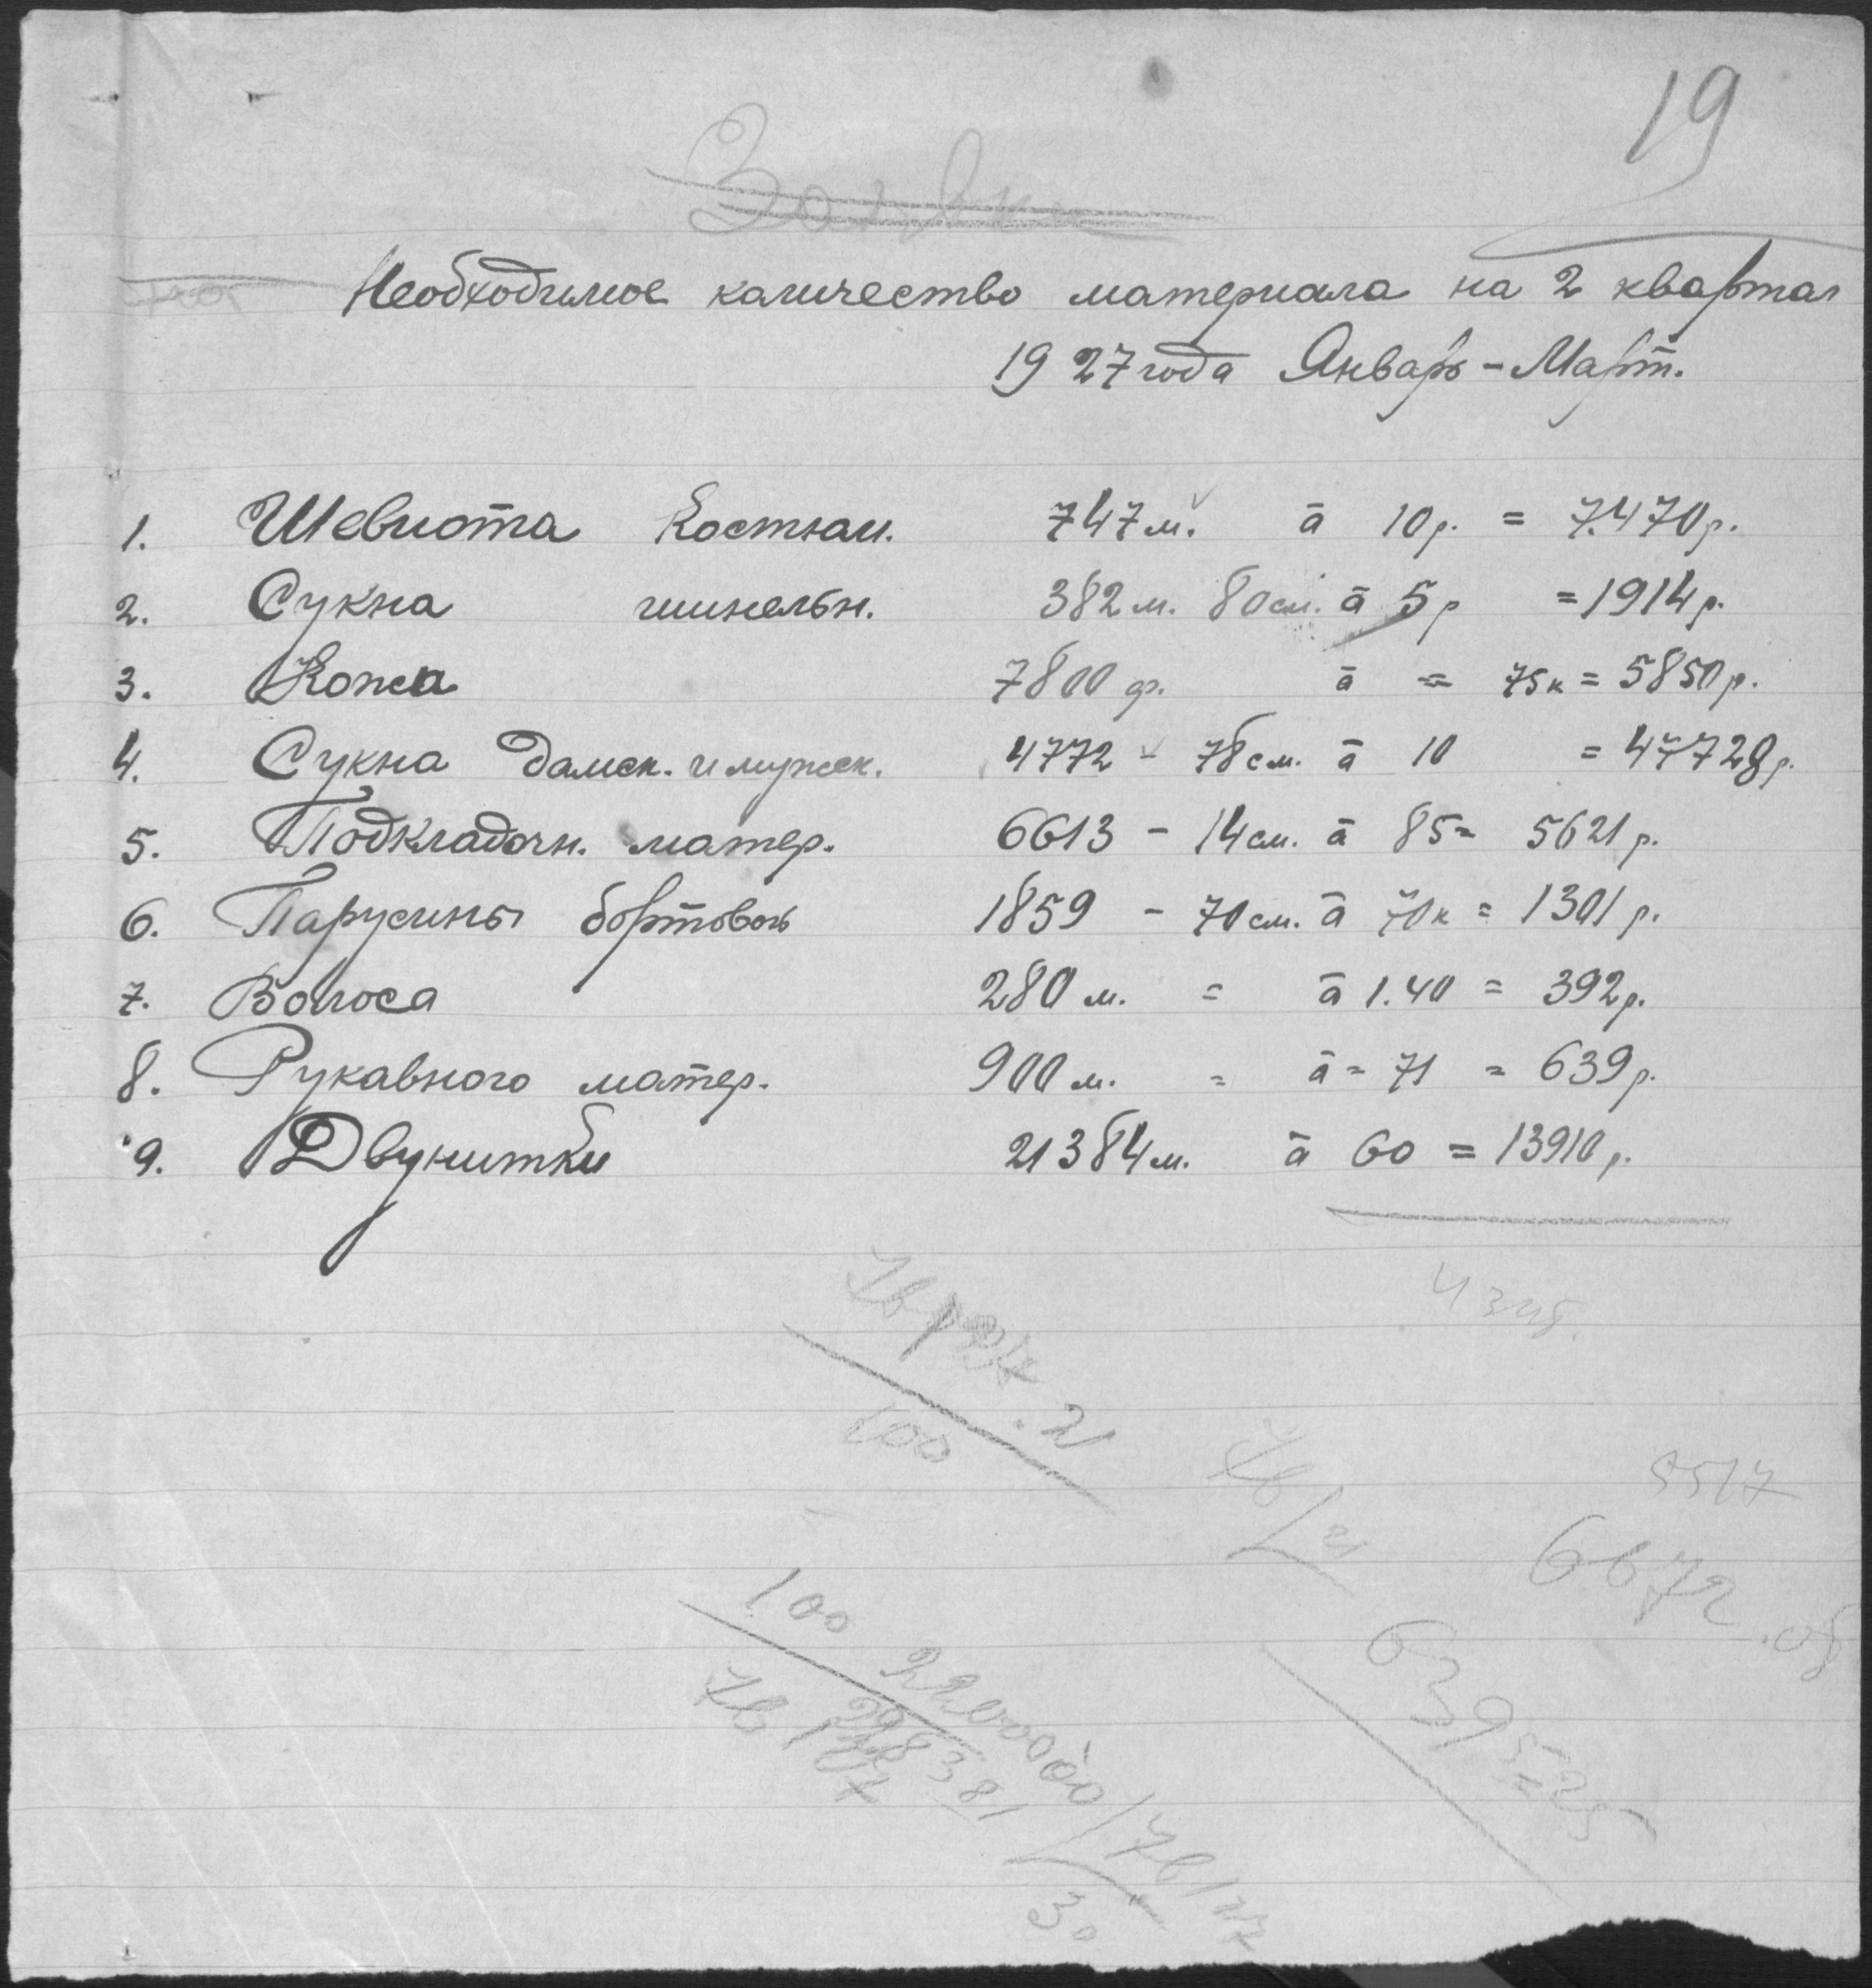 19
Заявки
Необходимое количество материала на 2 квартал
1927 года Январь - Март.
1. Шевиота Костюм. 747 м. à 10 р. = 7.470 р.
2. Сукна шинельн. 382 м. 80 см. à 5 р = 1914 р.
3. Кожа 7800 ф. à = 75 к = 5850 р.
4. Сукна дамск. и мужск. 4772 - 78 см. à 10 = 47728 р.
5. Подкладочн. матер. 6613 - 14 см. à 85 = 5621 р.
6. Парусины бортовой 1859 - 70 см. à 70 к = 1301 р.
7. Волоса 280 м. = à 1.40 = 392 р.
8. Рукавного матер. 900 м. = à = 71 = 639 р.
9. Двунитки 21384 м. à 60 = 13910 р.
4345.
21
100
76 21
5517
6672.08
100
76107
2200000
3.